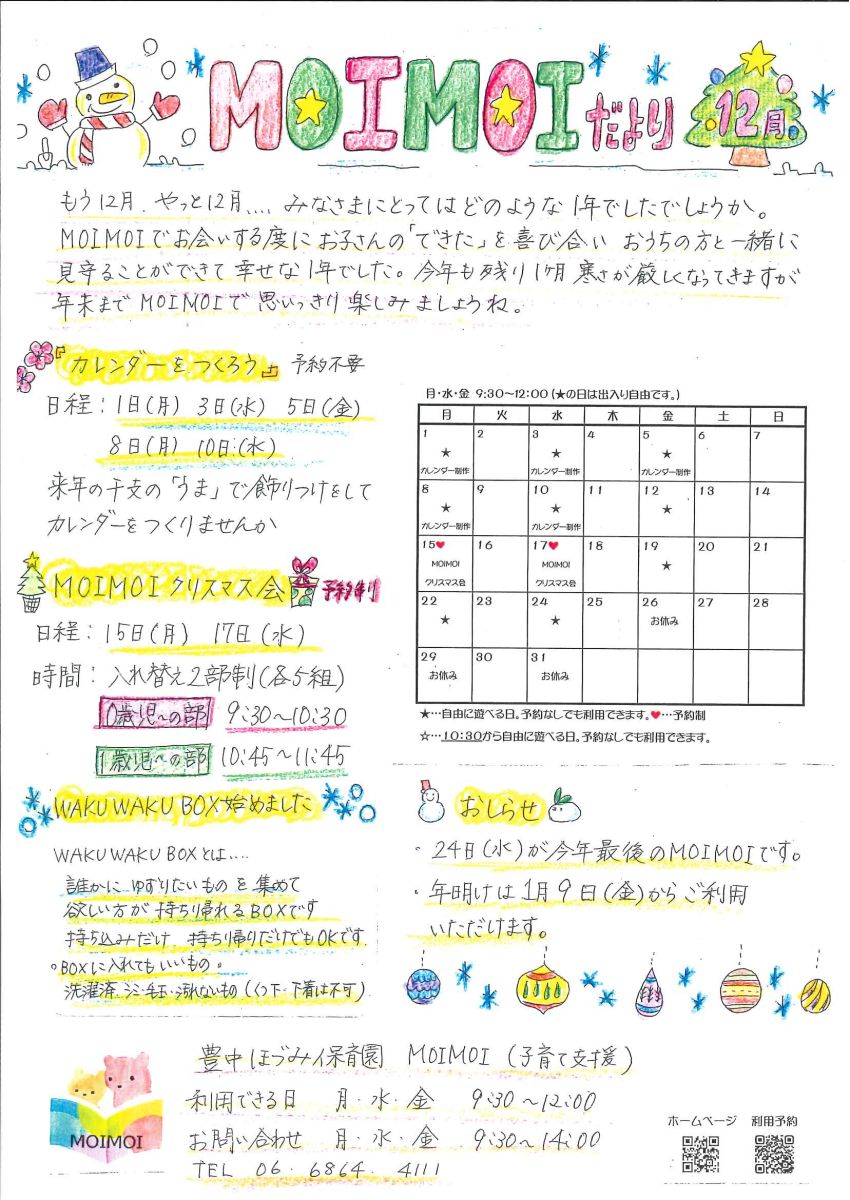 MOIMOIだより 12月
もう12月、やっと12月.... みなさまにとってはどのような1年でしたでしょうか。
MOIMOIでお会いする度にお子さんの「できた」を喜び合い おうちの方と一緒に
見守ることができて幸せな1年でした。今年も残り1ヶ月 寒さが厳しくなってきますが
年末までMOIMOIで思いっきり楽しみましょうね。
『カレンダーをつくろう』 予約不要
日程:1日(月) 3日(水) 5日(金)
8日(月) 10日(水)
来年の干支の「うま」で飾りつけをして
カレンダーをつくりませんか
MOIMOIクリスマス会 予約制
日程:15日(月) 17日(水)
時間:入れ替え2部制(各5組)
0歳児への部 9:30～10:30
1歳児への部 10:45～11:45
WAKU WAKU BOX始めました
WAKU WAKU BOXとは....
誰かにゆずりたいものを集めて
欲しい方が持ち帰れるBOXです
持ち込みだけ、持ち帰りだけでもOKです
。BOXに入れてもいいもの。
洗濯済、シミ・毛玉・汚れないもの(くつ下・下着は不可)
月・水・金 9:30～12:00(★の日は出入り自由です。)
月 火 水 木 金 土 日
1 2 3 4 5 6 7
★ ★ ★
カレンダー制作 カレンダー制作 カレンダー制作
8 9 10 11 12 13 14
★ ★ ★
カレンダー制作 カレンダー制作
15♥ 16 17♥ 18 19 20 21
MOIMOI MOIMOI ★
クリスマス会 クリスマス会
22 23 24 25 26 27 28
★ ★ お休み
29 30 31
お休み お休み
★…自由に遊べる日。予約なしでも利用できます。♥…予約制
☆…10:30から自由に遊べる日。予約なしでも利用できます。
おしらせ
・24日(水)が今年最後のMOIMOIです。
・年明けは1月9日(金)からご利用
いただけます。
MOIMOI
豊中ほづみ保育園 MOIMOI (子育て支援)
利用できる日 月・水・金 9:30～12:00
お問い合わせ 月・水・金 9:30～14:00
TEL 06・6864・4111
ホームページ 利用予約